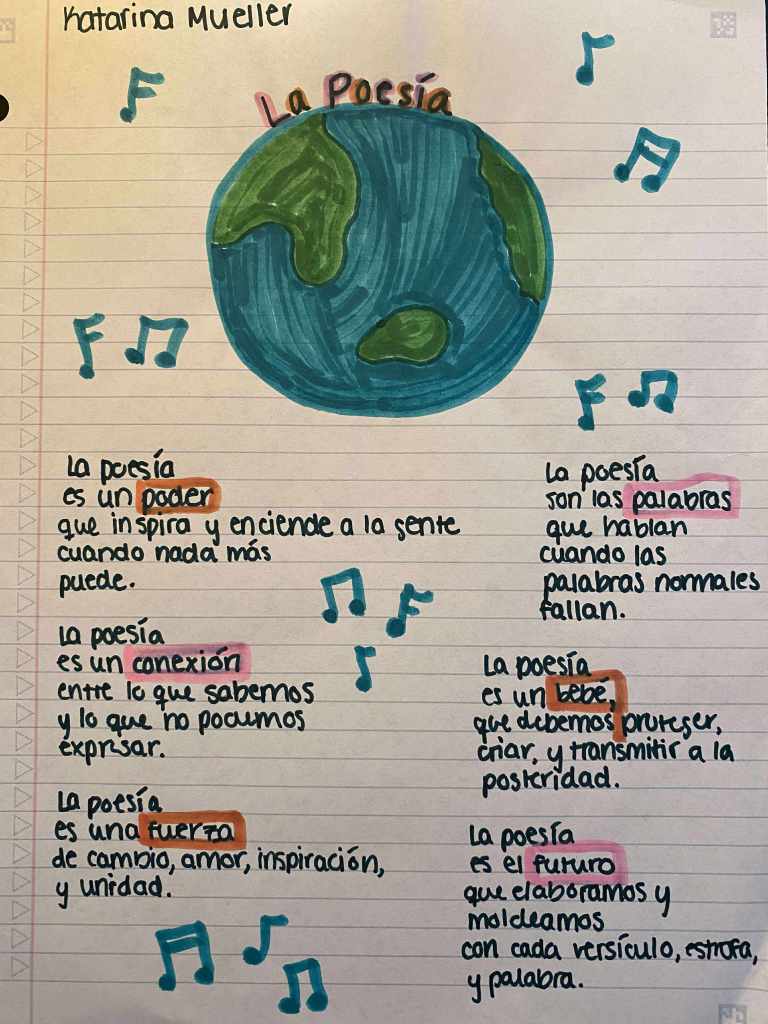 Katarina Mueller
La Poesía
La poesía
es un poder
que inspira y enciende a la gente
cuando nada más
puede.
La poesía
es un conexión
entre lo que sabemos
y lo que no podemos
expresar.
La poesía
es una fuerza
de cambio, amor, inspiración,
y unidad.
La poesía
son las palabras
que hablan
cuando las
palabras normales
fallan.
La poesía
es un bebé,
que debemos proteger,
criar, y transmitir a la
posteridad.
La poesía
es el futuro
que elaboramos y
moldeamos
con cada versículo, estrofa,
y palabra.